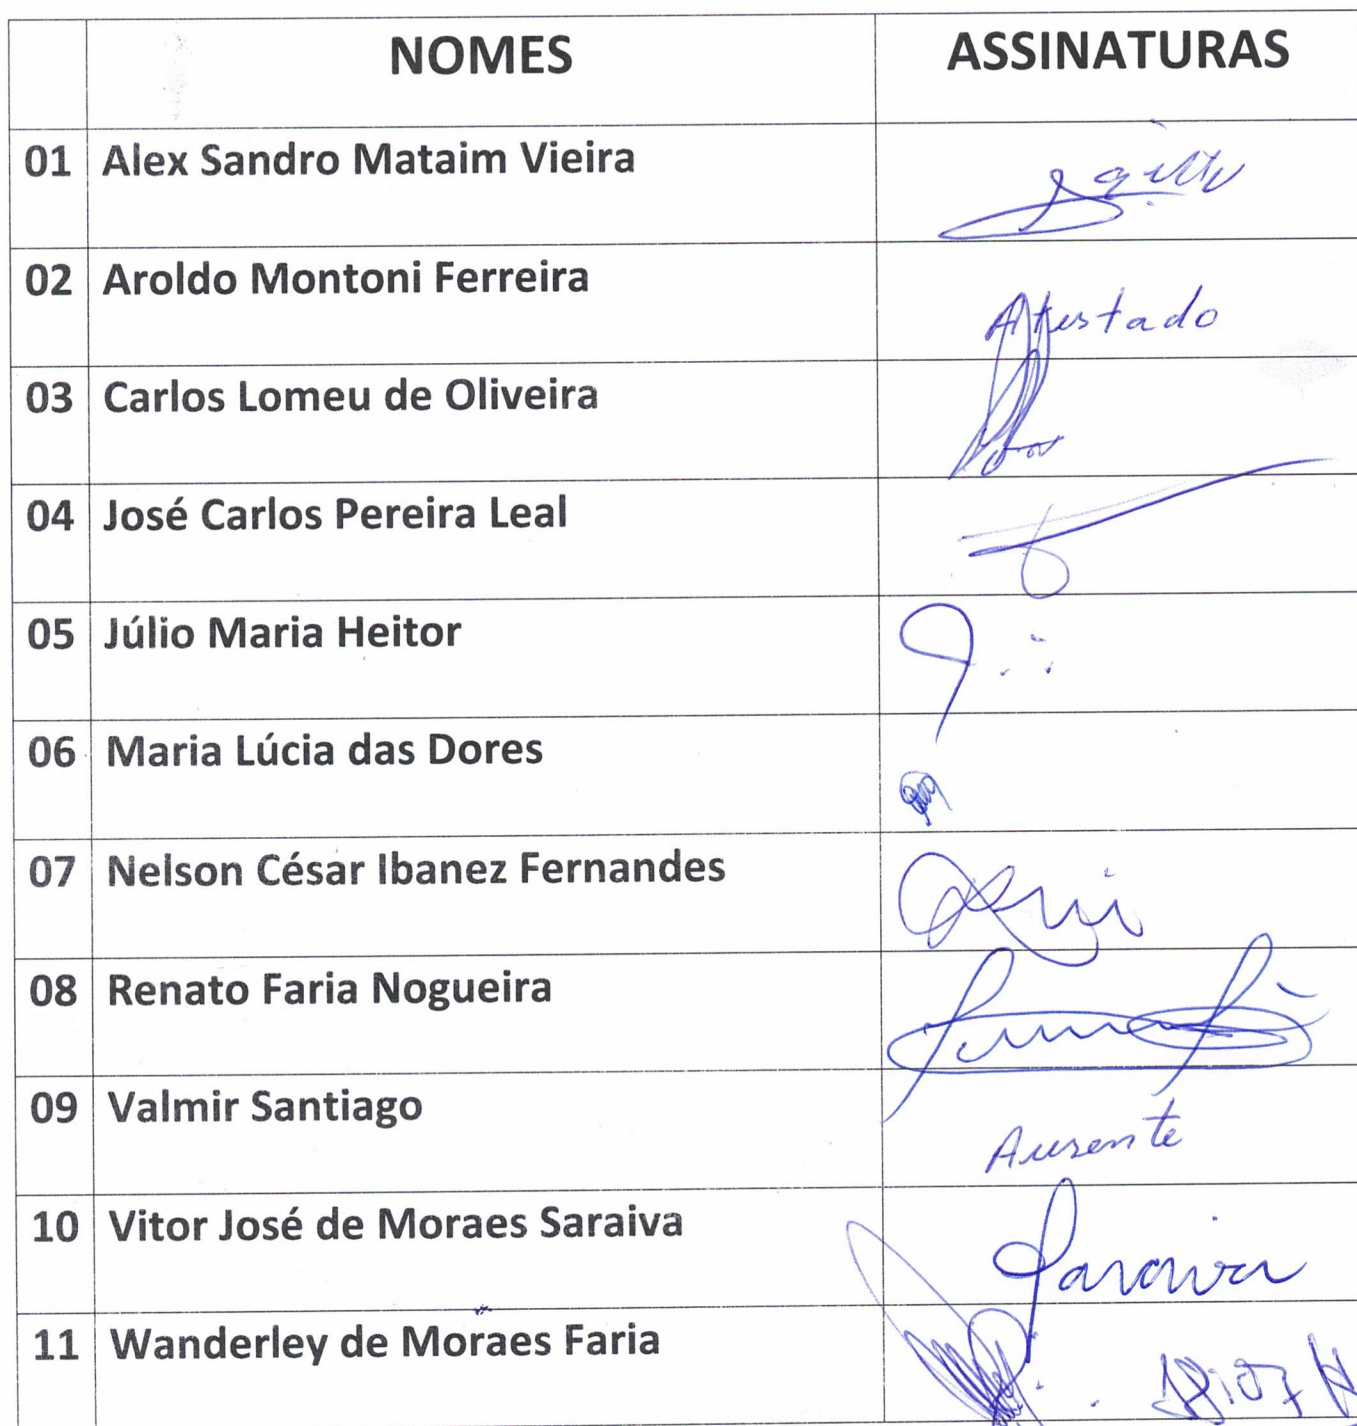 NOMES ASSINATURAS
01 Alex Sandro Mataim Vieira
02 Aroldo Montoni Ferreira Atestado
03 Carlos Lomeu de Oliveira
04 José Carlos Pereira Leal
05 Júlio Maria Heitor
06 Maria Lúcia das Dores
07 Nelson César Ibanez Fernandes
08 Renato Faria Nogueira
09 Valmir Santiago Ausente
10 Vitor José de Moraes Saraiva Saraiva
11 Wanderley de Moraes Faria 18:07 H